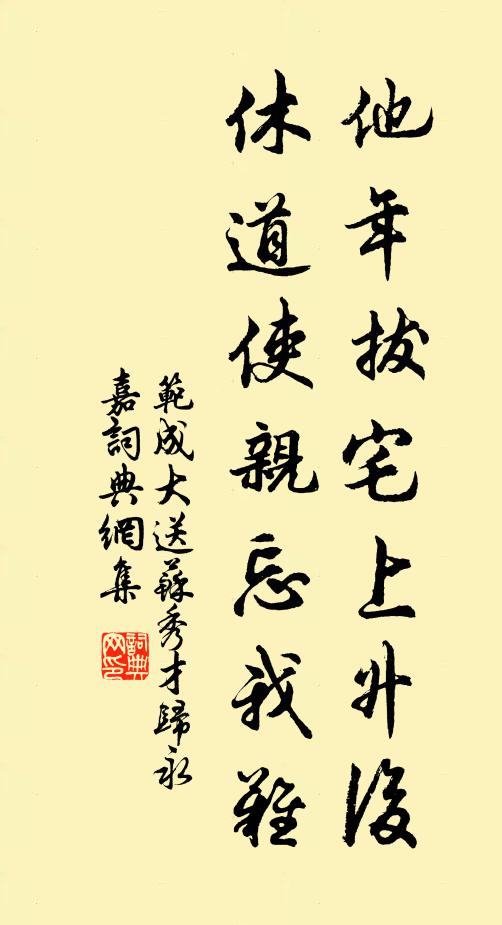 他年拔宅上升後
休道使親忘我難
範成大送蘇秀才歸永
嘉詞典網集
詞典网印